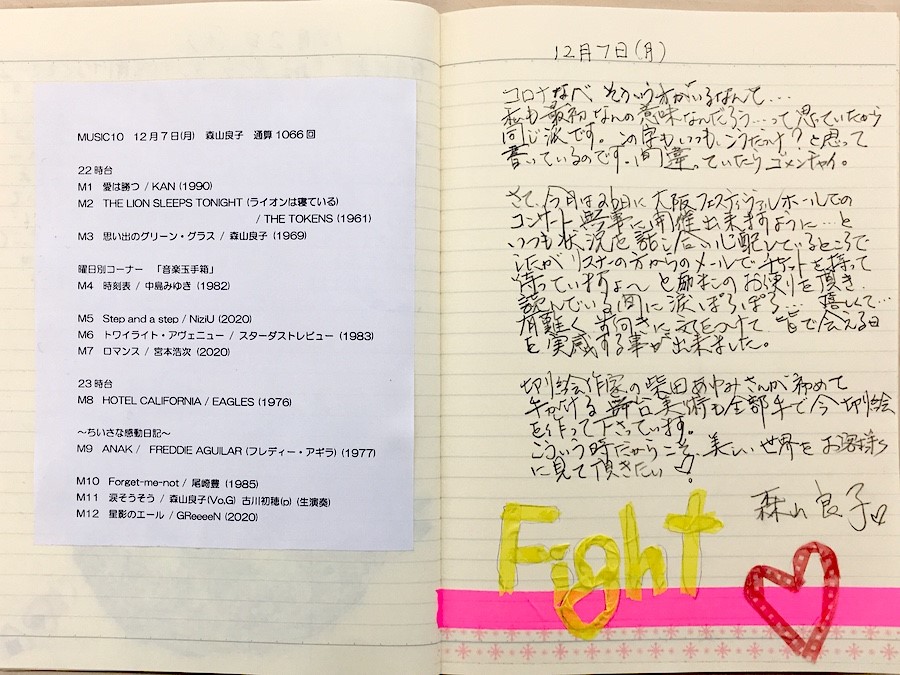 MUSIC10 12月7日(月) 森山良子 通算1066回
22時台
M1 愛は勝つ / KAN (1990)
M2 THE LION SLEEPS TONIGHT (ライオンは寝ている)
/ THE TOKENS (1961)
M3 思い出のグリーン・グラス / 森山良子 (1969)
曜日別コーナー 「音楽玉手箱」
M4 時刻表 / 中島みゆき (1982)
M5 Step and a step / NiziU (2020)
M6 トワイライト・アヴェニュー / スターダストレビュー (1983)
M7 ロマンス / 宮本浩次 (2020)
23時台
M8 HOTEL CALIFORNIA / EAGLES (1976)
～ちいさな感動日記～
M9 ANAK / FREDDIE AGUILAR (フレディー・アギラ) (1977)
M10 Forget-me-not / 尾崎豊 (1985)
M11 涙そうそう / 森山良子(Vo,G) 古川初穂(p) (生演奏)
M12 星影のエール / GReeeeN (2020)
12月7日(月)
コロナなべ そういう方がいるなんて...
私も最初なんの意味なんだろう...って思っていたから
同じ派です。この字もいつもこうだっけ?と思って
書いているのです。間違っていたらゴメンチャイ。
さて、今月は26日に大阪フェスティヴァルホールでの
コンサート 無事に開催出来ますように...と
いつも状況を話し合い心配しているところで
リスナーの方からのメールでチケットを持って
待っていますよ～と励ましのお便りを頂き
読んでいる間に涙ぽろぽろ... 嬉しくて...
有難く 前向きに 気をつけて 皆で会える日
を実感する事が出来ました。
切り絵作家の柴田あゆみさんが初めて
手がける舞台美術も全部手で今切り絵
を作って下さっています。
こういう時だからこそ、美しい世界をお客様
に見て頂きたい♡。
森山良子♡
Fight